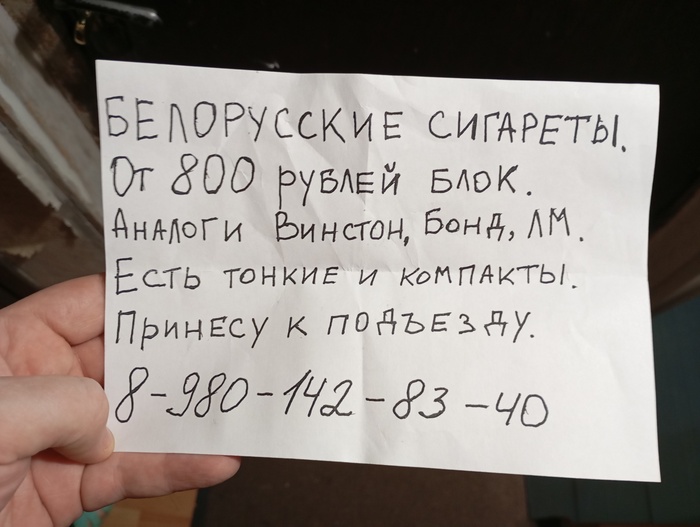 БЕЛОРУССКИЕ СИГАРЕТЫ.
От 800 рублей блок.
Аналоги Винстон, Бонд, ЛМ.
Есть тонкие и компакты.
Принесу к подъезду.
8-980-142-83-40